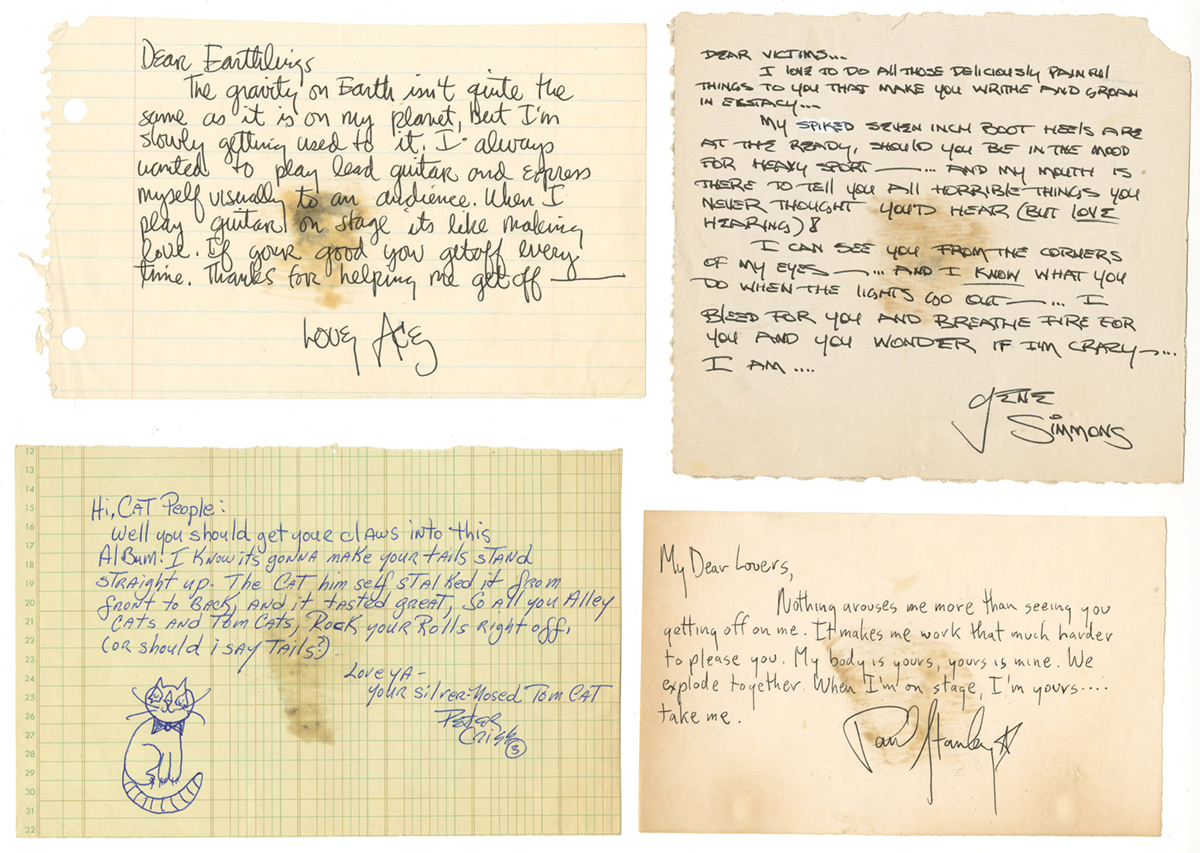 Dear Earthlings
The gravity on Earth isn't quite the
same as it is on my planet, But I'm
slowly getting used to it. I always
wanted to play lead guitar and express
myself visually to an audience. When I
play guitar on stage its like making
love. If your good you getoff every
time. Thanks for helping me get off —
Love, Ace
DEAR VICTIMS...
I LOVE TO DO ALL THOSE DELICIOUSLY PAINFUL
THINGS TO YOU THAT MAKE YOU WRITHE AND GROAN
IN ECSTACY...
MY SPIKED SEVEN INCH BOOT HEELS ARE
AT THE READY, SHOULD YOU BE IN THE MOOD
FOR HEAVY SPORT —... AND MY MOUTH IS
THERE TO TELL YOU ALL HORRIBLE THINGS YOU
NEVER THOUGHT YOU'D HEAR (BUT LOVE
HEARING)!
I CAN SEE YOU FROM THE CORNERS
OF MY EYES —... AND I KNOW WHAT YOU
DO WHEN THE LIGHTS GO OUT —... I
BLEED FOR YOU AND BREATHE FIRE FOR
YOU AND YOU WONDER IF I'M CRAZY —...
I AM ....
GENE
SIMMONS
12
13
14
15
16
17
18
19
20
21
22
23
24
25
26
27
28
29
30
31
32
Hi, CAT People:
Well you should get your claws into this
Album! I know its gonna make your tails stand
straight up. The Cat him self stalked it from
front to back, and it tasted great, So all you Alley
Cats and Tom Cats, Rock your Rolls right off,
(or should i say Tails?)
Love ya -
your silver-nosed Tom Cat
Peter
Criss
My Dear Lovers,
Nothing arouses me more than seeing you
getting off on me. It makes me work that much harder
to please you. My body is yours, yours is mine. We
explode together. When I'm on stage, I'm yours....
take me.
Paul Stanley